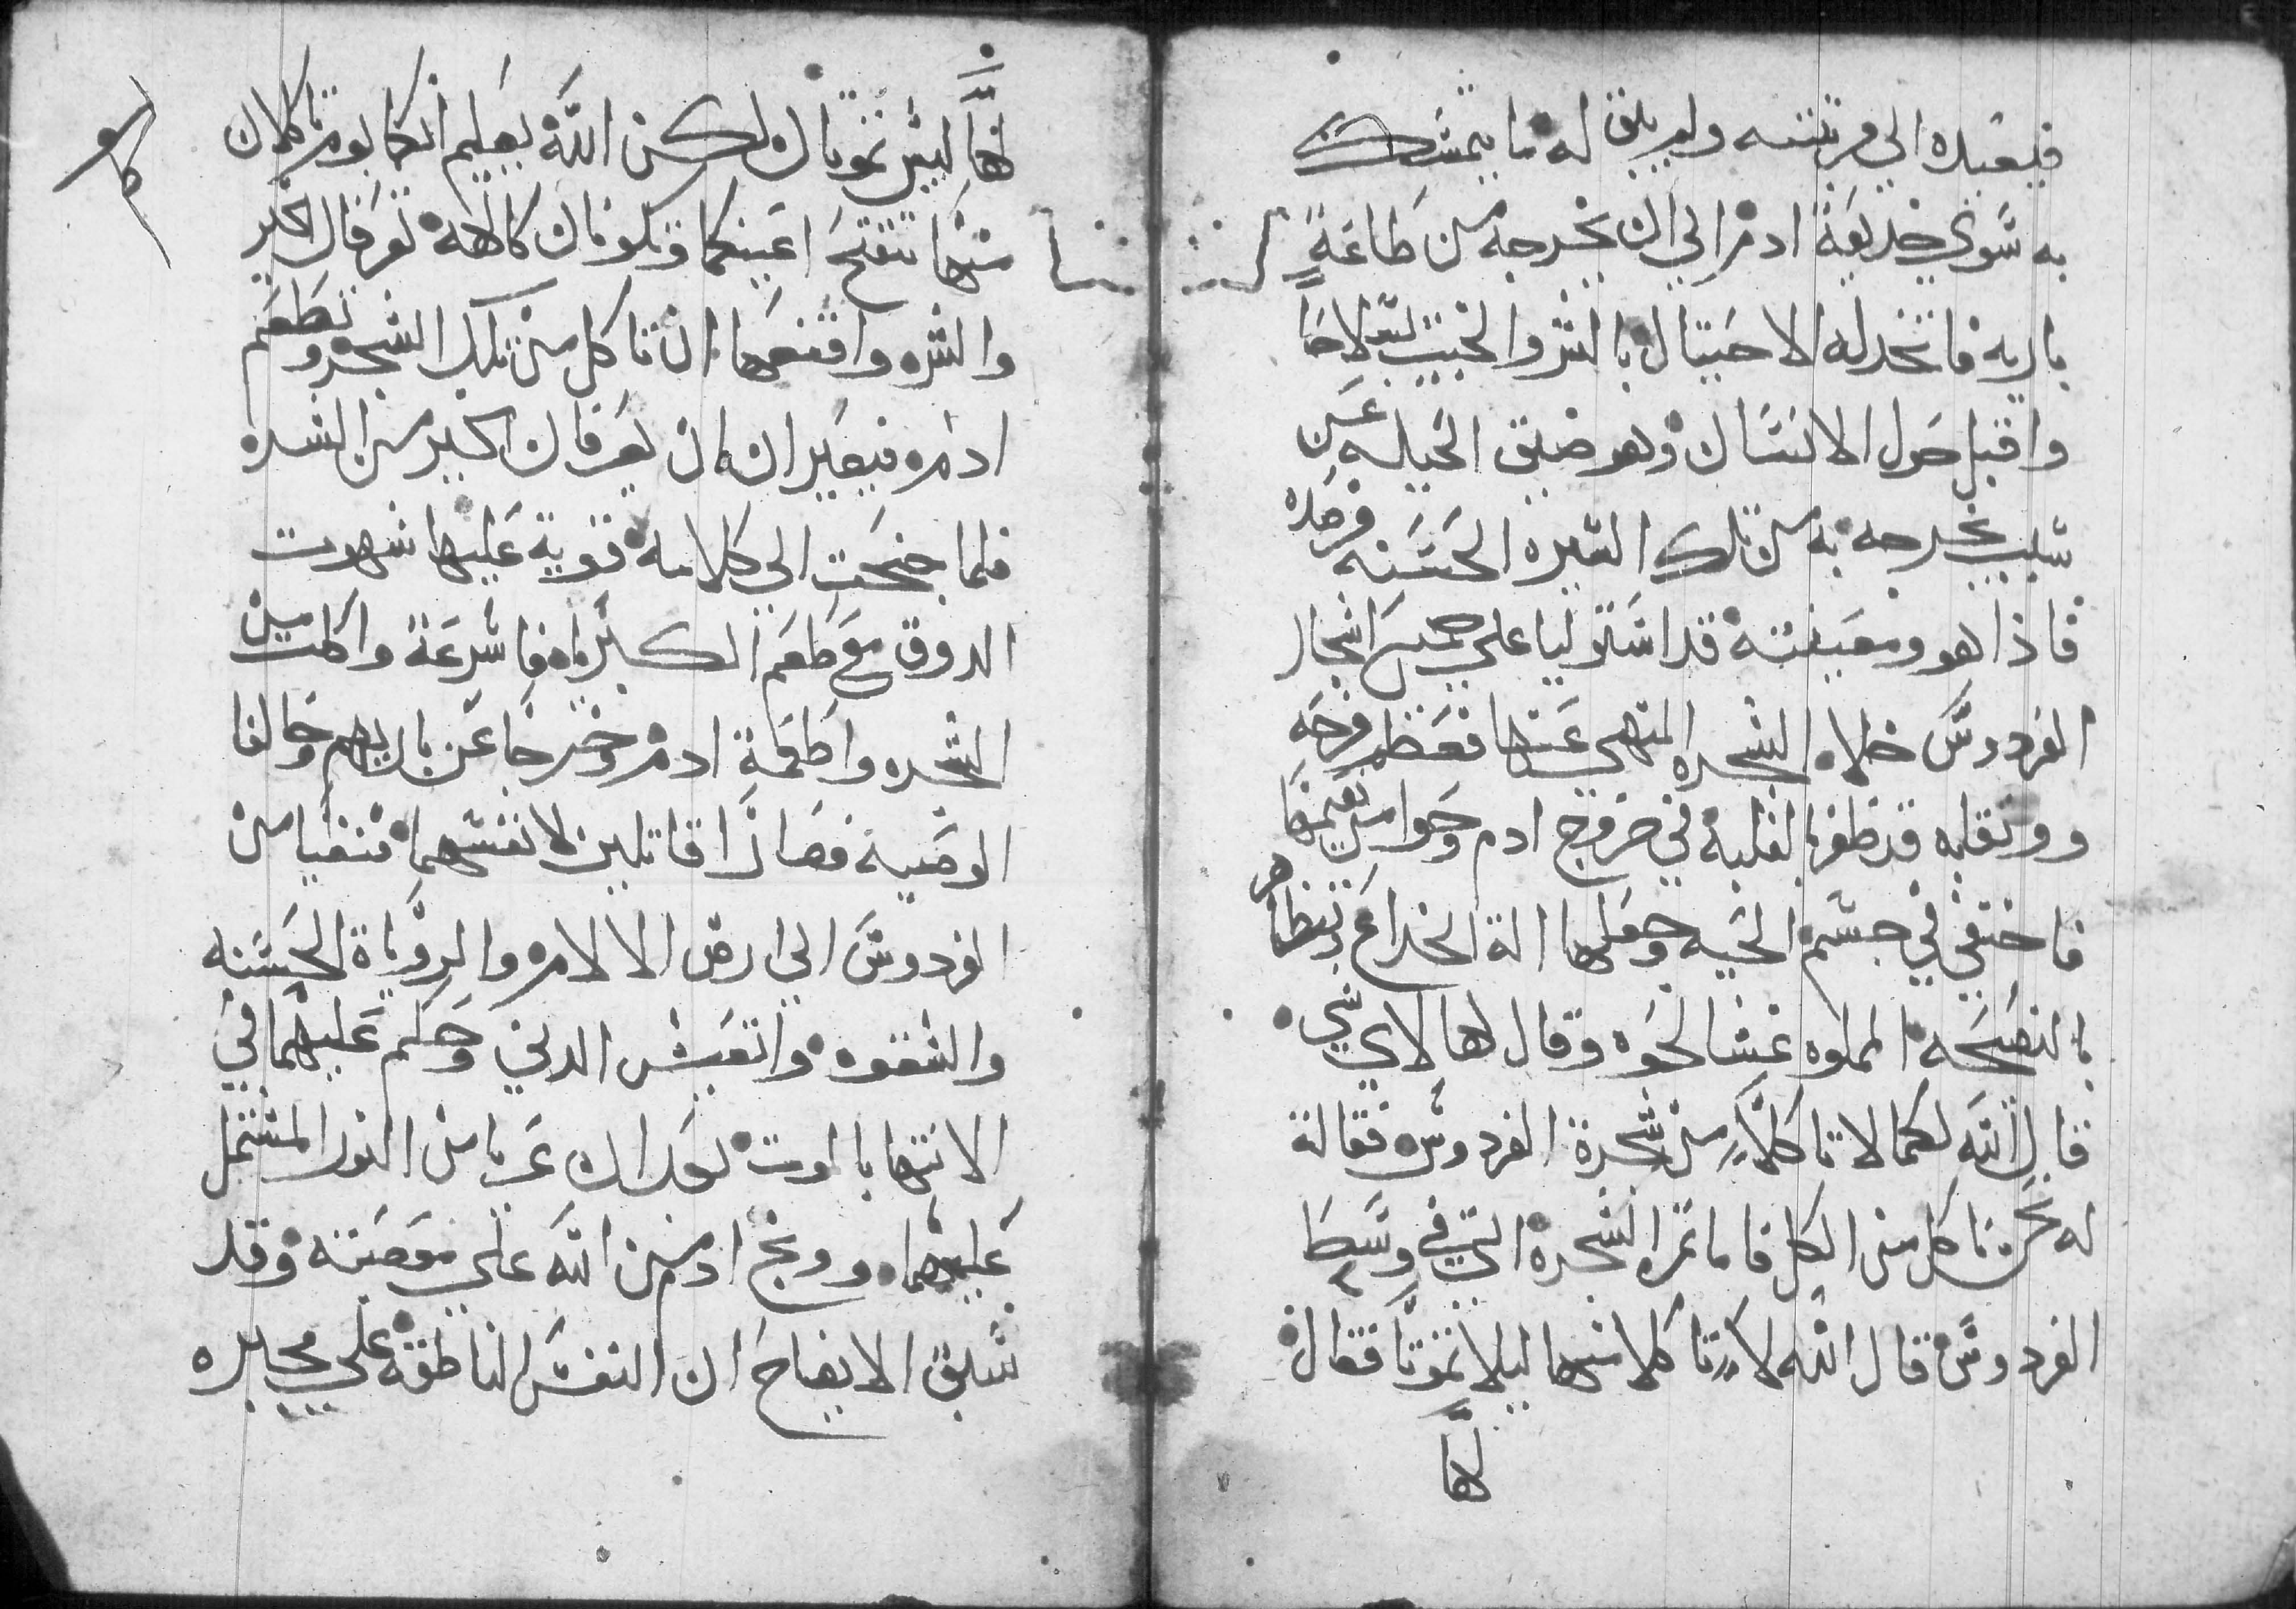 فيعيده الي مرتبته ولم يبق له ما يتمسك
به سوي خديعة ادم الي ان يخرجه من طاعة
باريه فاتخد له الاحتيال بالشر والخبيث سلاحا
واقبل حول الانسان وهو ضيق الحيله عن
سبب يخرجه به من تلك السيره الحسنه فرصده
فاذا هو ومعينته قد استوليا علي جميع اشجار
الفردوس خلاه الشجره المنهي عنها فعظم فرحه
ووتق انه قد ظفر بالغلبه في خروج ادم وحوا من نعيمها
فاختفي في جسم الحيه وجعلها الة الخداع وتظاهر
بالنصيحه المملوه غشا لحوه وقال لها لاي شي
قال الله لكما لا تاكلا من شجرة الفردوس فقالة
له نحن ناكل من الكل فاما تمر الشجره التي في وسط
الفردوس قال الله لا تاكلا منها ليلا تموتا فقال
لها
لها ليس تموتان لكن الله يعلم انكما يوم تاكلان
منها تتفتح اعينكما وتكونان كالالهه تعرفان الخير
والشر واقنعها ان تاكل من تلك الشجره وتطعم
ادم فيصيران يعرفان اكبر من الشده
فلما جنحت الي كلامه قوية عليها شهوت
الدوق مع طعم الكبرياه فاسرعة واكلت من
الشجره واطعمة ادم وخرجا عن باريهم وخالفا
الوصية فصارا قاتلين لانفسهما فنفيا من
الفردوس الي ارض الالام والروياة الحسنه
والشقوه واتعبش الدني وحكم عليهما في
الانتها بالموت بعد ان عريا من النور المشتمل
عليهما ووبخ ادم من الله علي معصيته وقد
سبق الايضاح ان النفس الناطقه علي مجابره